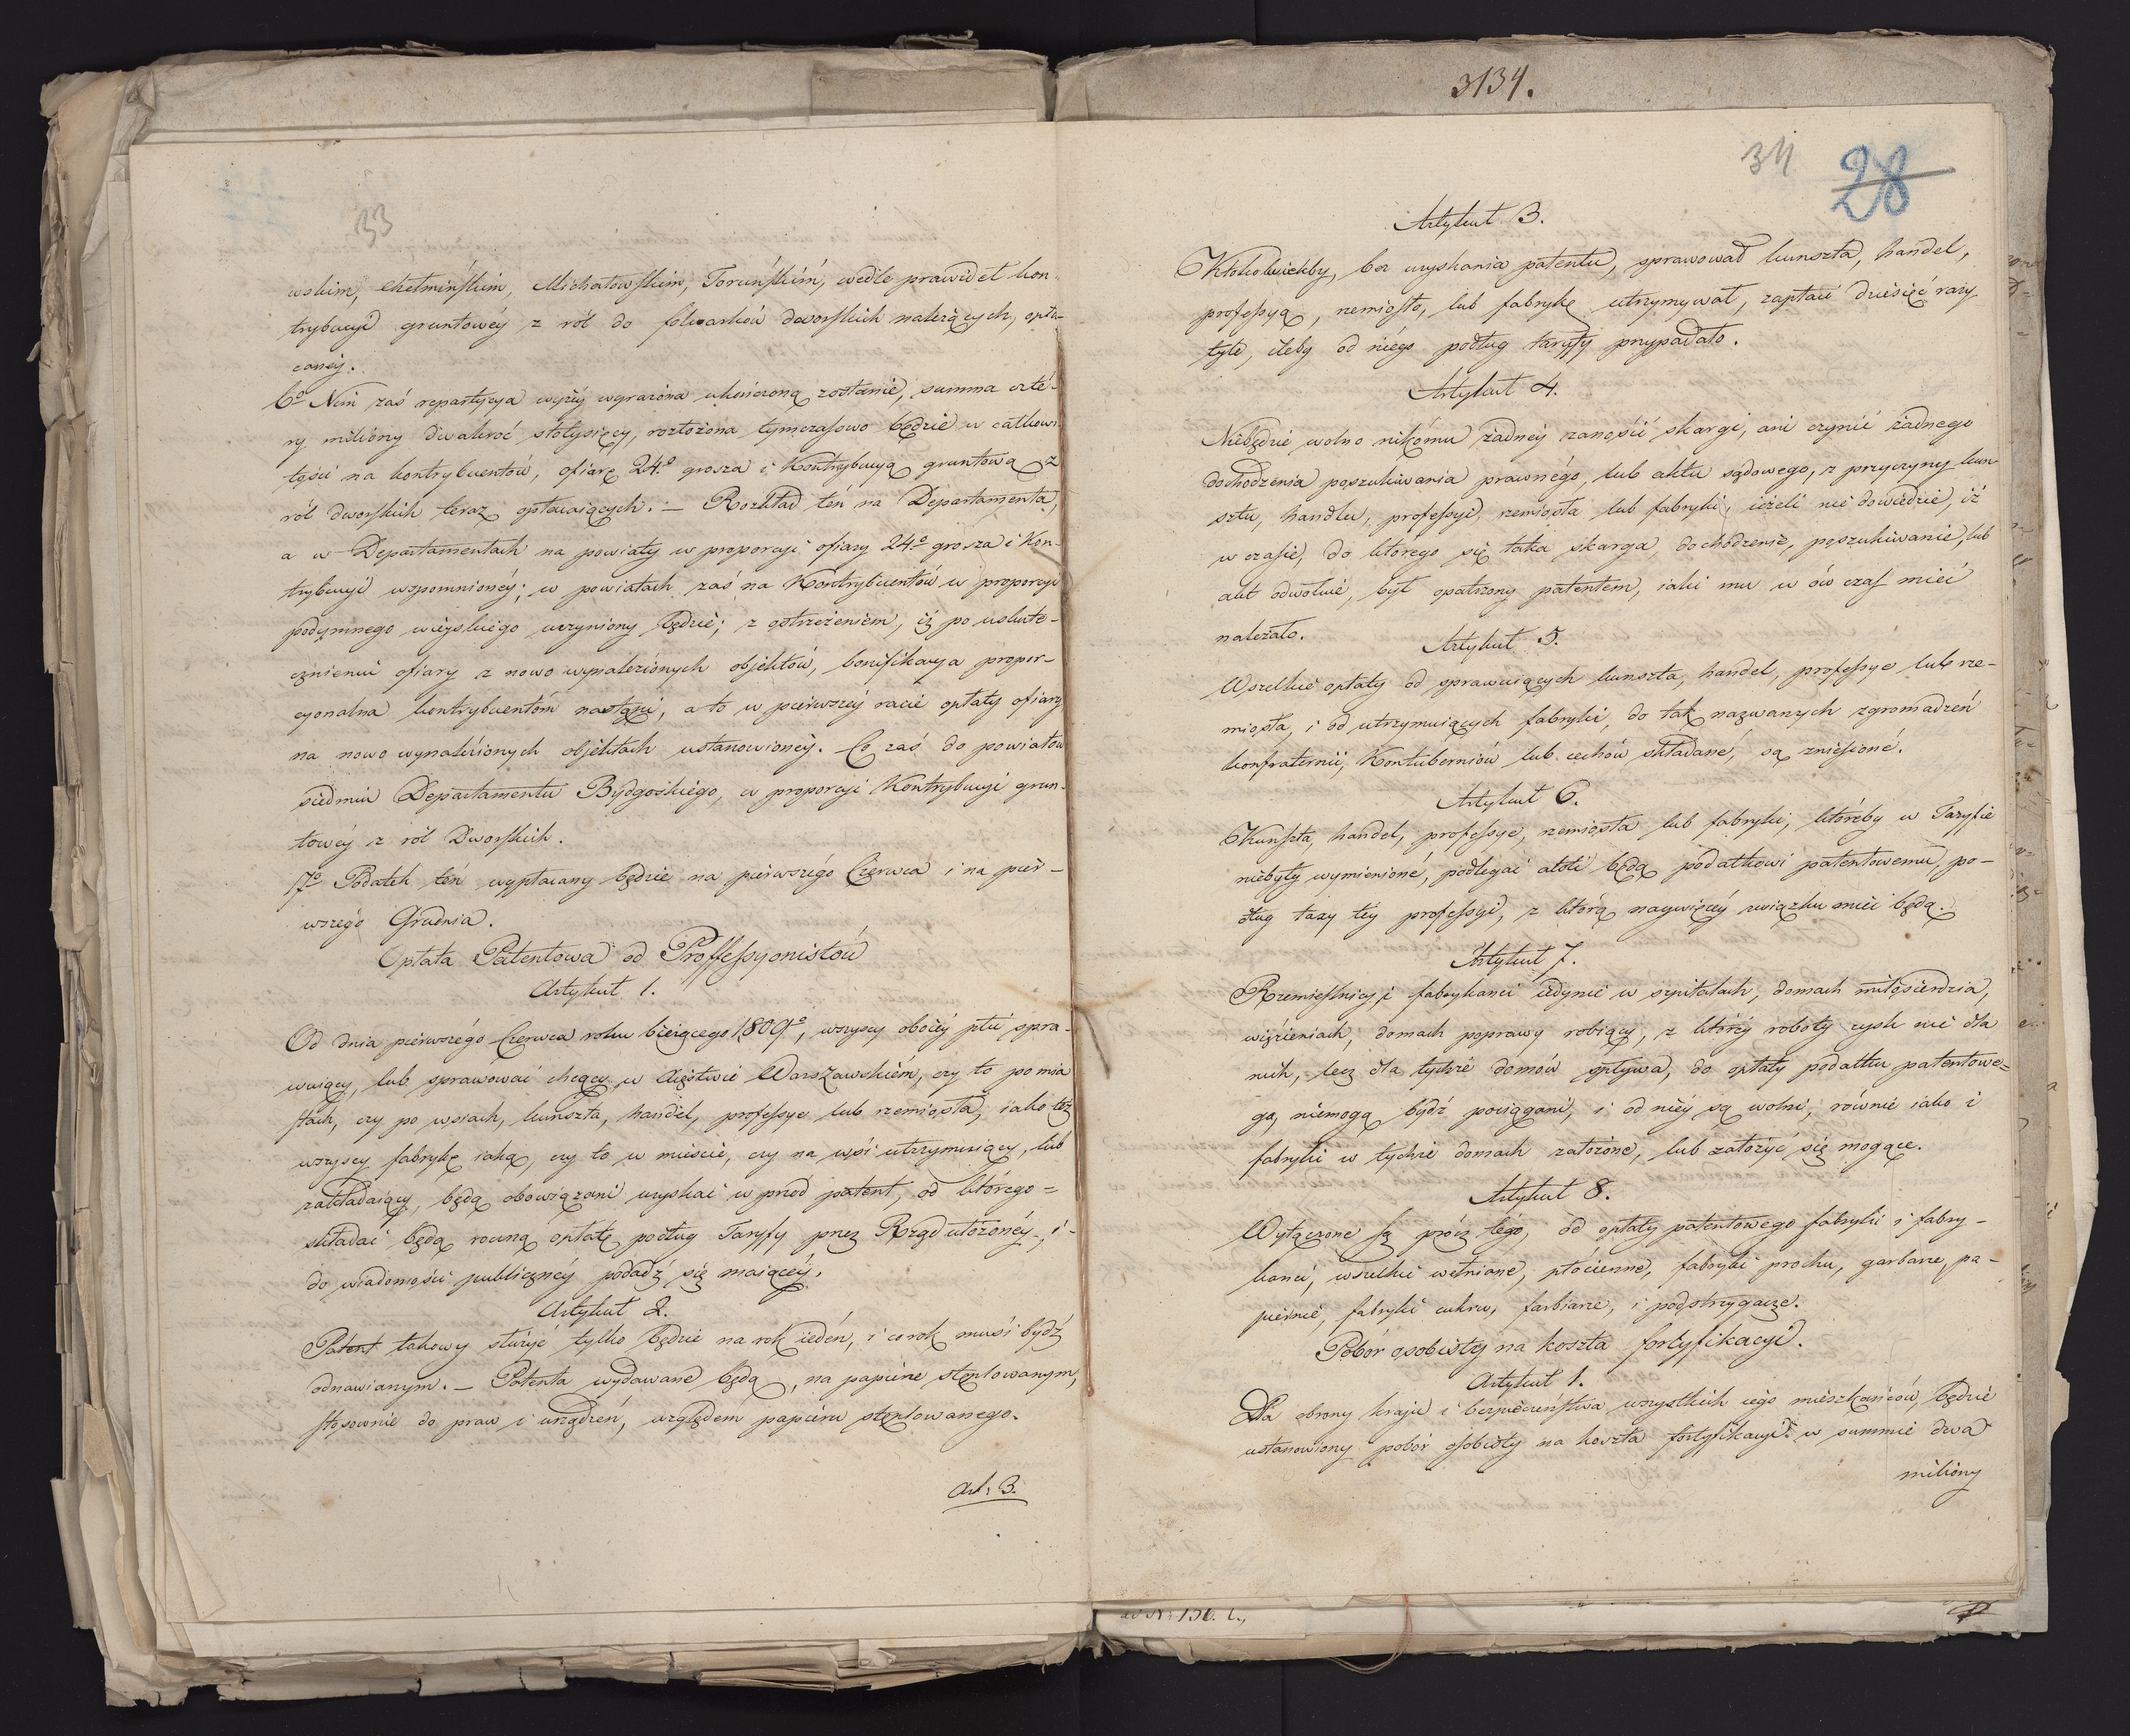 33
wskim, Chełmińskim, Michałowskim, Toruńskim, wedle prawideł kon-
trybucyi gruntowéy z ról do folwarków dworskich należących, opła-
caney.
6º Nim zaś repartycya wyżéy wyrażona ukończoną zostanie, summa czté-
ry miliony dwakroć stotysięcy, rozłożona tymczasowo będzie w całkowi-
tości na kontrybuentów, ofiarę 24.º grosza i Kontrybucyą gruntową z
ról dworskich teraz opłacaiących. — Rozkład ten na Departamenta,
a w Departamentach na powiaty w proporcyi ofiary 24º grosza i Kon-
trybucyi wspomnionéy; w powiatach zaś na Kontrybuentów w proporcyi
podymnego wieyskiego uczyniony będzie; z ostrzeżeniem, iż po uskute-
cznieniu ofiary z nowo wynalezionych objektów, bonifikacya propor-
cyonalna kontrybuentóm nastąpi, a to w pierwszéy racie opłaty ofiary
na nowo wynalezionych objektach ustanowionéy. Co zaś do powiatów
siedmiu Departamentu Bydgoskiego, w proporcyi Kontrybucyi grun-
towéy z ról Dworskich.
7º Podatek tén wypłacany będzie na pierwszégo Czerwca i na pier-
wszégo Grudnia.
Opłata Patentowa od Proffessyonistów
Artykuł 1.
Od dnia pierwszégo Czerwca roku bieżącego 1,809º, wszyscy oboiéy płci spra-
wuiący, lub sprawować chcący w Xięstwie Warszawskiém, czy to po mia-
stach, czy po wsiach, kunszta, handel, professye lub rzemiosła, iako też
wszyscy fabrykę iaką, czy to w mieście, czy na wsi utrzymuiący, lub
zakładaiący, będą obowiązani uzyskać w przód patent, od którego=
składać będą roczną opłatę podług Taryfy przez Rząd ułożonéy, i-
do wiadomości publicznéy podadź się maiącéy.
Artykuł 2.
Patent takowy służyć tylko będzie na rok iedén, i co rok musi bydź
odnawianym. — Patenta wydawane będą, na papierze stęplowanym,
stosownie do praw i urządzeń, względem papiéru stęplowanego.
Art: 3.
3134.
34
28
Artykuł 3.
Ktokolwiekby, bez uzyskania patentu, sprawował kunszta, handel,
professyą, rzemiosło, lub fabrykę utrzymywał, zapłaci dziesięć razy
tyle, ileby od niégo podług taryfy przypadało.
Artykuł 4.
Niebędzie wolno nikomu żadnéy zanosić skargi, ani czynić żadnego
dochodzenia poszukiwania prawnégo, lub aktu sądowego, z przyczyny kun-
sztu, handlu, professyi, rzemiosła lub fabryki, ieżeli nie dowiedzie, iż
w czasie, do którego się taka skarga, dochodzenie, poszukiwanie, lub
akt odwołuie, był opatrzony patentem, iaki mu w ów czas mieć
należało.
Artykuł 5.
Wszelkie opłaty od sprawuiących kunszta, handel, professye lub rze-
miosła, i od utrzymuiących fabryki, do tak nazwanych zgromadzeń
konfraternii, Kontuberniów lub cechów składané, są zniesioné.
Artykuł 6.
Kunszta, handel, professye, rzemiosła lub fabryki, któréby w Taryfie
niebyły wymienioné, podlegać atoli będą podatkowi patentowemu, po-
dług taxy téy professyi, z którą naywięcéy związku mieć będą.
Artykuł 7.
Rzemieślnicy i fabrykanci iedynie w szpitalach, domach miłosierdzia,
więzieniach, domach poprawy robiący, z któréy roboty zysk nie dla
nich, lecz dla tychże domów spływa, do opłaty podatku patentowe=
go, niemogą bydź pociągani, i od niéy są wolni, równie iako i
fabryki w tychże domach założone, lub założyć się mogące.
Artykuł 8.
Wyłączone są prócz tégo, od opłaty patentowego fabryki i fabry-
kanci, wszelkie wełniane, płócienne, fabryki prochu, garbarze, pa-
piernie, fabryki cukru, farbiarze, i podstrzygacze.
Pobór osobisty na koszta fortyfikacyi.
Artykuł 1.
Dla obrony kraju i bezpieczeństwa wszystkich iégo mieszkańców, będzie
ustanowiony pobór osobisty na koszta fortyfikacyi w summie dwa
miliony
ad Nr 150.